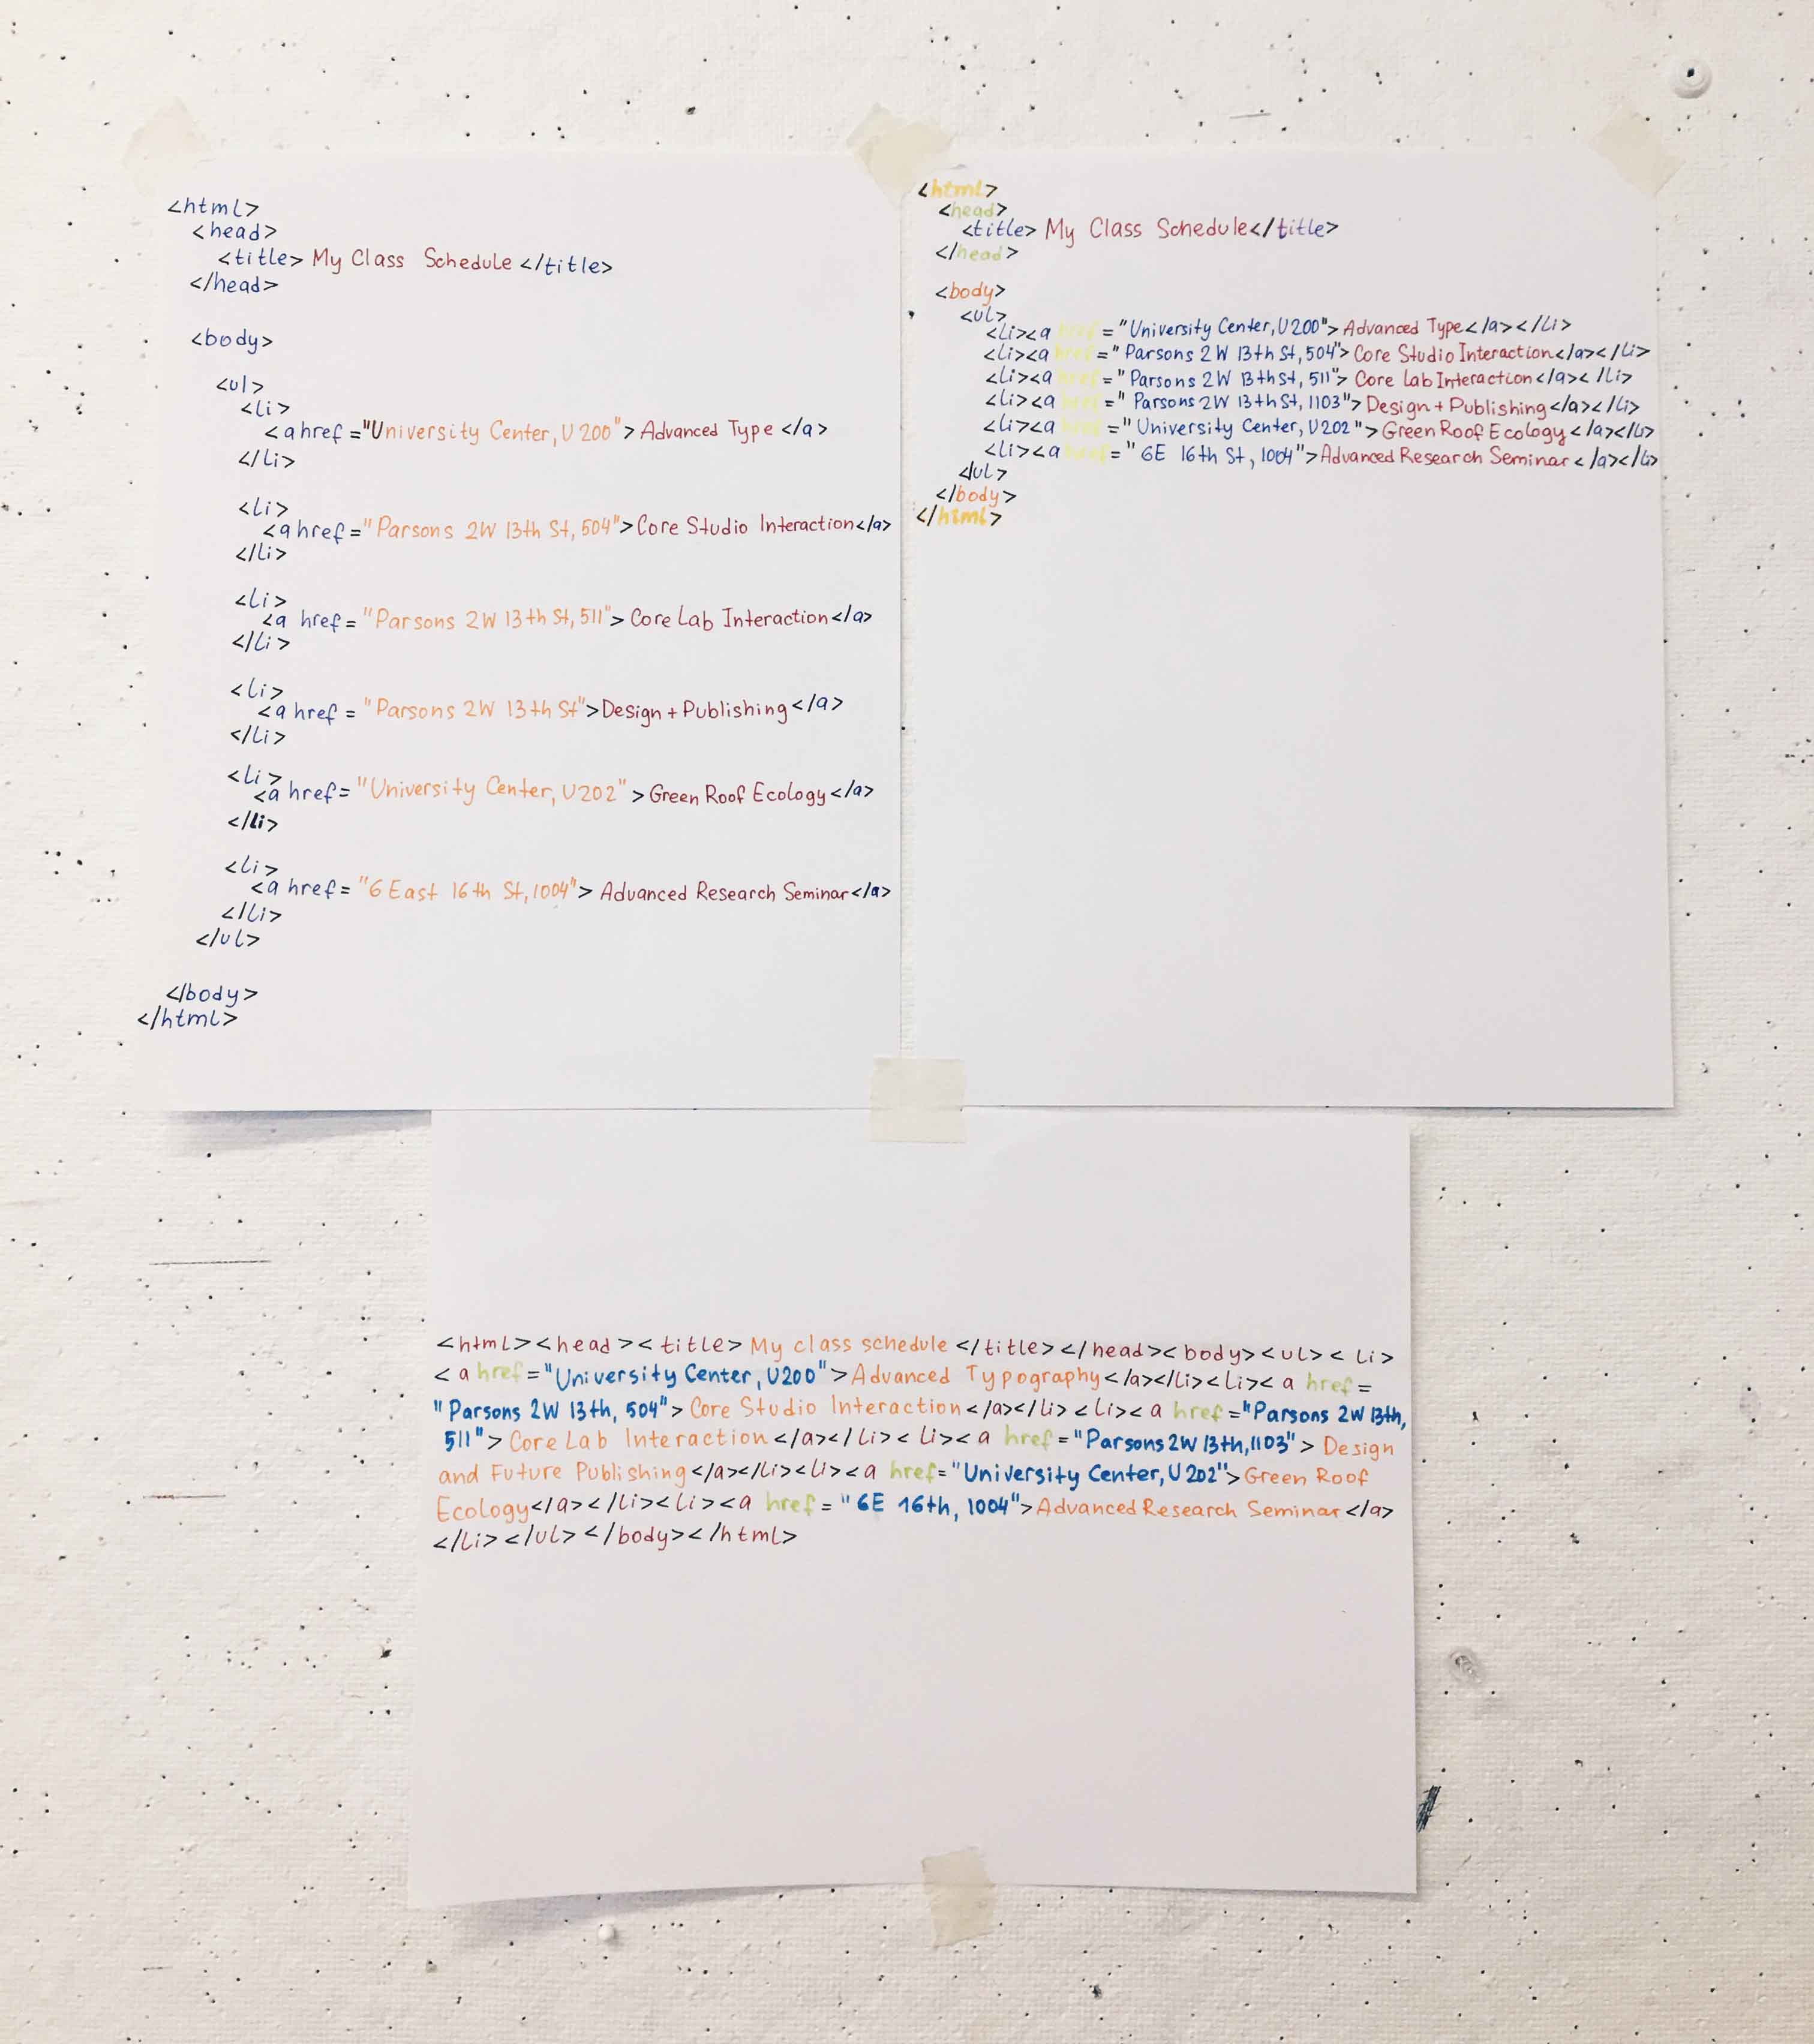 <html>
<head>
<title> My Class Schedule </title>
</head>
<body>
<ul>
<li>
<a href ="University Center, U200"> Advanced Type </a>
</li>
<li>
<a href="Parsons 2W 13th St, 504">Core Studio Interaction</a>
</li>
<li>
<a href="Parsons 2W 13th St, 511"> Core Lab Interaction</a>
</li>
<li>
<a href = "Parsons 2W 13th St">Design + Publishing</a>
</li>
<li>
<a href= "University Center, U202" > Green Roof Ecology</a>
</li>
<li>
<a href= "6 East 16th St, 1004"> Advanced Research Seminar</a>
</li>
</ul>
</body>
</html>
<html>
<head>
<title> My Class Schedule</title>
</head>
<body>
<ul>
<li><a href = "University Center, U200"> Advanced Type</a></li>
<li><a href=" Parsons 2W 13th St, 504"> Core Studio Interaction</a></li>
<li><a href="Parsons 2W 13th St, 511"> Core Lab Interaction</a></li>
<li><a href=" Parsons 2W 13th St, 1103"> Design + Publishing</a></li>
<li><a href="University Center, U202"> Green Roof Ecology</a></li>
<li><a href= " 6E 16th St, 1004">Advanced Research Seminar</a></li>
</ul>
</body>
</html>
<html><head><title> My class schedule </title></head><body><ul><li>
<a href="University Center, U200">Advanced Typography</a></li><li><a href=
"Parsons 2W 13th, 504"> Core Studio Interaction</a></li><li><a href="Parsons 2W 13th,
511"> Core Lab Interaction</a></li><li><a href="Parsons 2W 13th, 1103"> Design
and Future Publishing</a></li><li><a href="University Center, U202">Green Roof
Ecology</a></li><li><a href = "6E 16th, 1004">Advanced Research Seminar</a>
</li></ul></body></html>